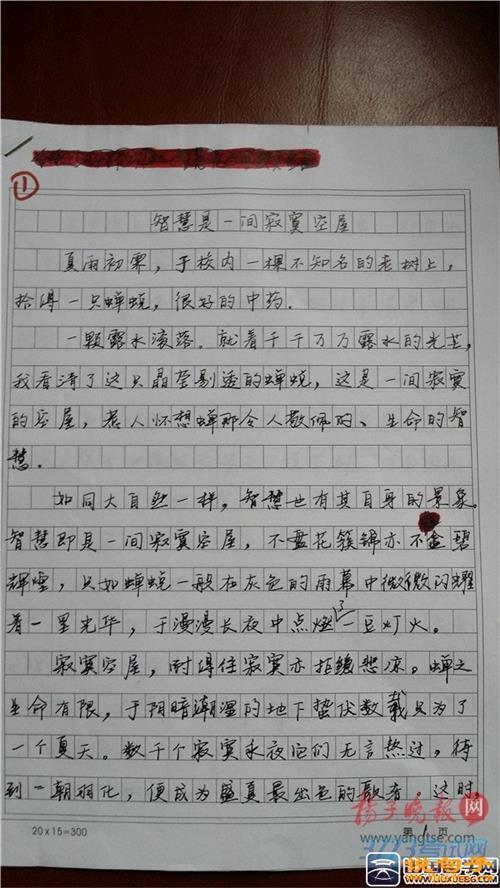 ①
智慧是一间寂寞空屋
夏雨初霁，于校内一棵不知名的老树上，
拾得一只蝉蜕，很好的中药。
一颗露水滚落。就着千千万万露水的光芒，
我看清了这只晶莹剔透的蝉蜕，这是一间寂寞
的空屋，惹人怀想蝉那令人敬佩的、生命的智
慧.
如同大自然一样，智慧也有其自身的景象。
智慧即是一间寂寞空屋，不盈花簇锦亦不金碧
辉煌，只如蝉蜕一般在灰色的雨幕中微微闪耀
着一星光华，于漫漫长夜中点燃了一豆灯火。
寂寞空屋，耐得住寂寞亦拒绝悲凉。蝉之
生命有限，于阴暗潮湿的地下蛰伏数载只为了
一个夏天。数千个寂寞永夜它们无言熬过，待
到一朝羽化，便成为盛夏最出色的歌者。这时
20×15=300
第 1 页
扬子晚报网
www.yangtse.com
WWW.LIUXUE86.COM